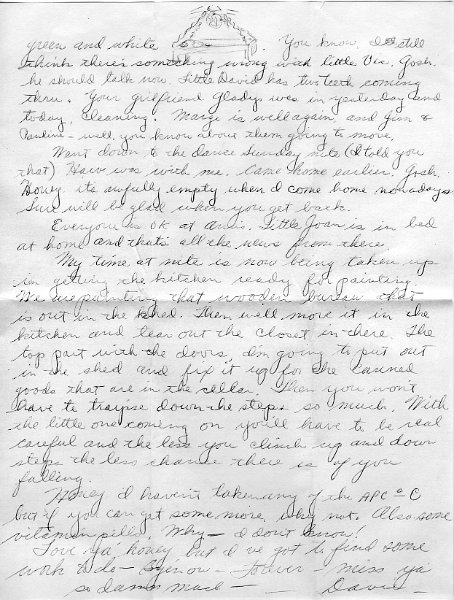 green and white . You know, I still
think there's something wrong with little Vic. Gosh,
he should talk now. Little David has two teeth coming
thru. Your girlfriend Gladys was in yesterday and
today, cleaning. Marge is well again, and Jim &
Pauline - well, you know about them going to move.
Went down to the dance Sunday nite (I told you
that) was with me. Came home earlier. Gosh,
Honey, its awfully empty when I come home nowadays.
Sure will be glad when you get back.
Everyone is OK at Little Joan is in bed
at home and that's all the news from there.
My time at nite is now being taken up
in getting the kitchen ready for painting.
We are painting that wooden bureau that
is out in the shed. Then we'll move it in the
kitchen and tear out the closet in there. The
top part with the doors, I'm going to put out
in the shed and fix it up for the canned
goods that are in the cellar. Then you won't
have to traipse down the steps so much. With
the little one coming on you'll have to be real
careful and the less you climb up and down
steps the less chance there is of you
falling.
Honey I haven't taken any of the APC's
but if you can get some more, why not. Also some
vitamin pills. Why - I don't know!
Love ya' honey but I've got to find some
work to do - - Forever - miss ya'
so damn much - Dave -